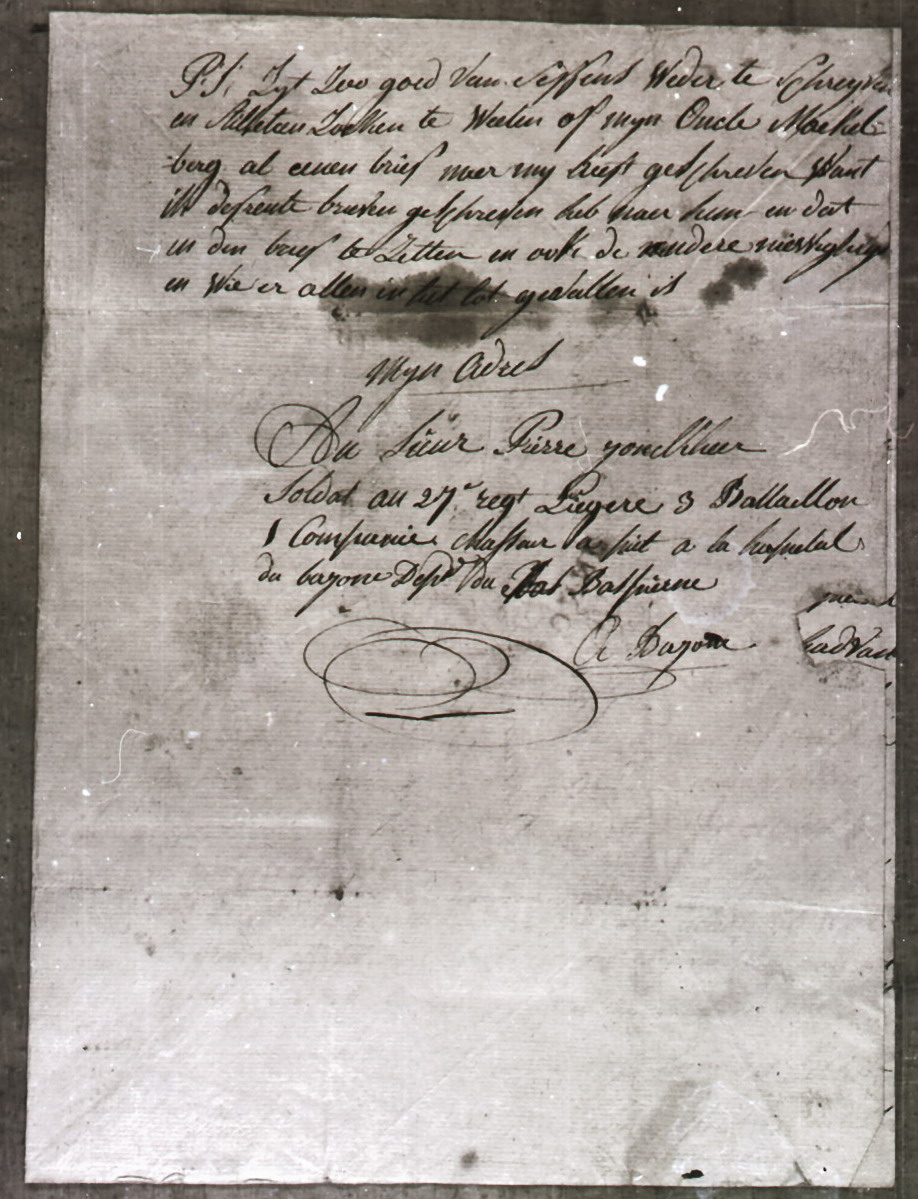 P:S: Zyt Zoo goed van seffens Weder te schreyven
en Zoeken te Weeten of myn Oncle Mackel=
berg al eenen brief naer my heeft geschreven Want
ik defrente brieven geschreven heb naer hem en dat
in den brief te Zetten en ook de andere
en Wie er allen in het lot gevallen is
Myn Adres
Au Sieur Pierre
Soldat au 27e regt Liegere 3 Battaillon
1 Companie chasseur a piet a la hospetal
du bayone Depr du Bas
A Bayone